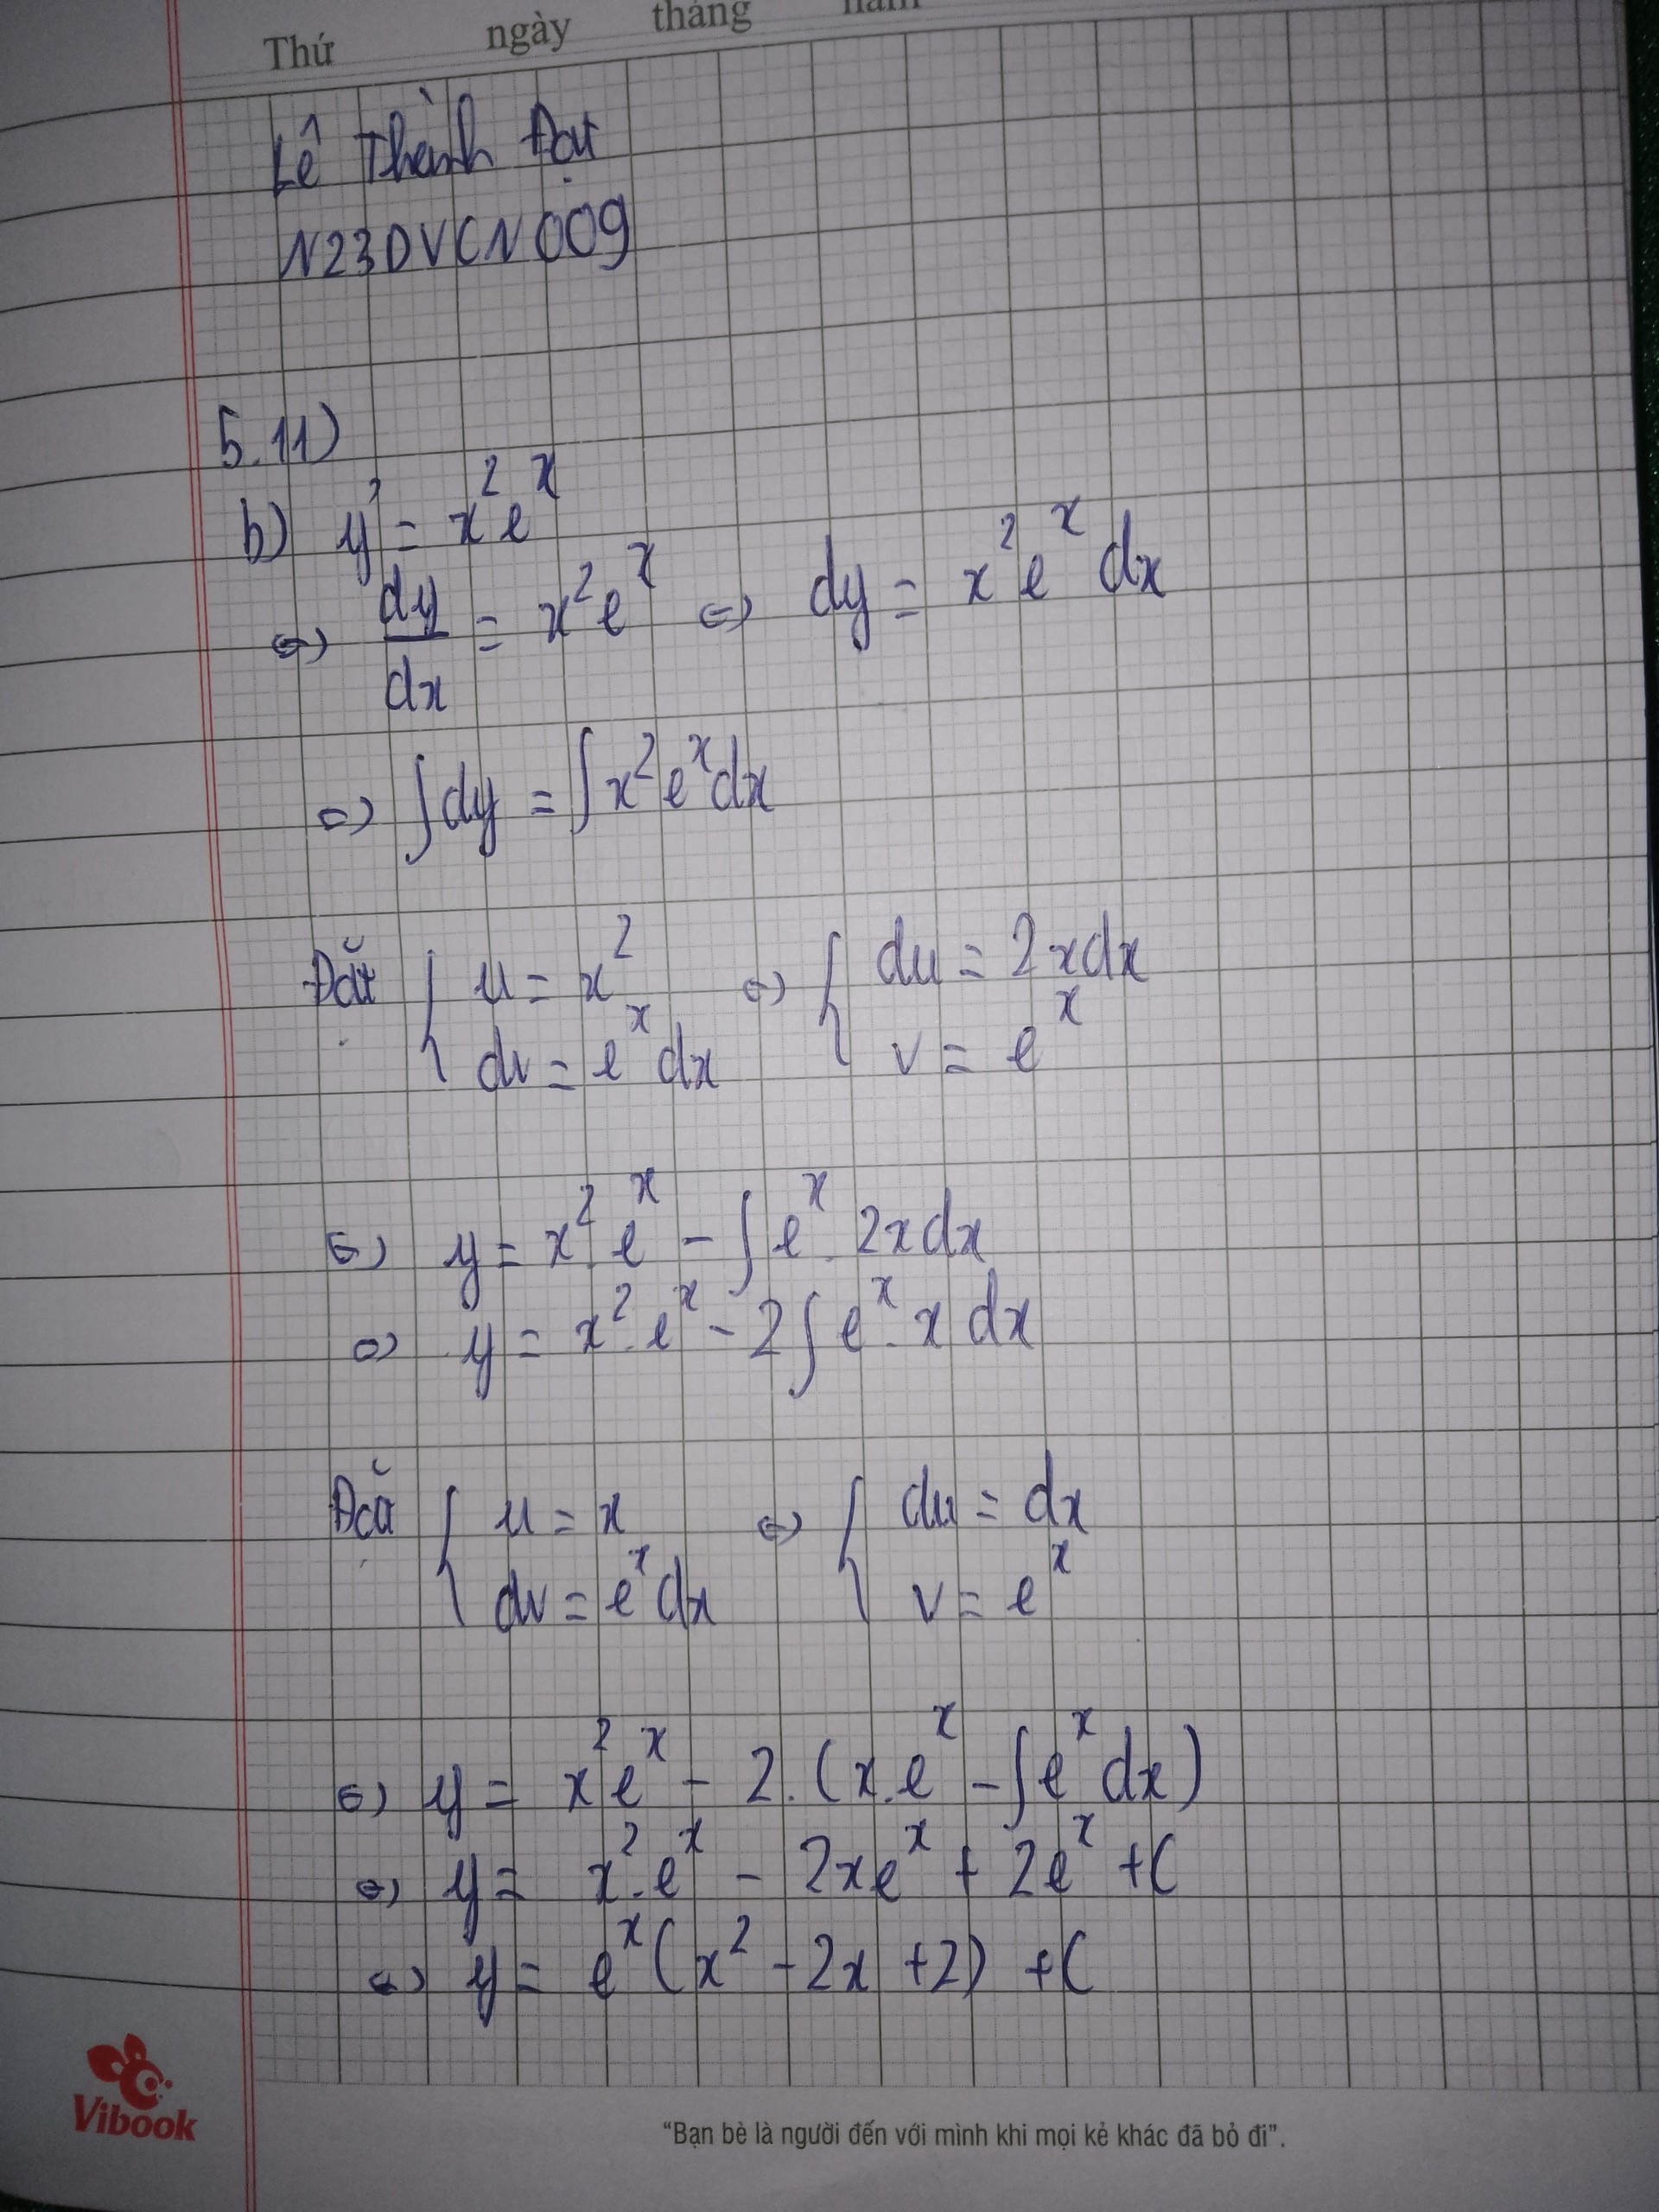 Thứ ngày tháng năm
Lê Thành Đạt
N23DVCN009
5.11)
b) y' = x²eˣ
⇔ dy/dx = x²eˣ ⇔ dy = x²eˣ dx
⇔ ∫dy = ∫x²eˣdx
Đặt { u = x² ⇔ { du = 2xdx
dv = eˣdx v = eˣ
⇔ y = x².eˣ - ∫eˣ.2xdx
⇔ y = x².eˣ - 2∫eˣ.x dx
Đặt { u = x ⇔ { du = dx
dv = eˣdx v = eˣ
⇔ y = x²eˣ - 2.(x.eˣ - ∫eˣdx)
⇔ y = x².eˣ - 2xeˣ + 2eˣ + C
⇔ y = eˣ(x² - 2x + 2) + C
Vibook
“Bạn bè là người đến với mình khi mọi kẻ khác đã bỏ đi”.